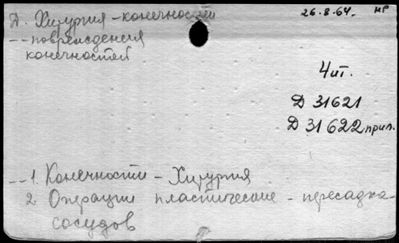 Д. Хирургия - конечности
26.8.64. НР
-- повреждения
конечностей
4 ит.
Д 31621
Д 31622 прил.
-- 1. Конечности - Хирургия
2. Операции пластические - пересадка
сосудов